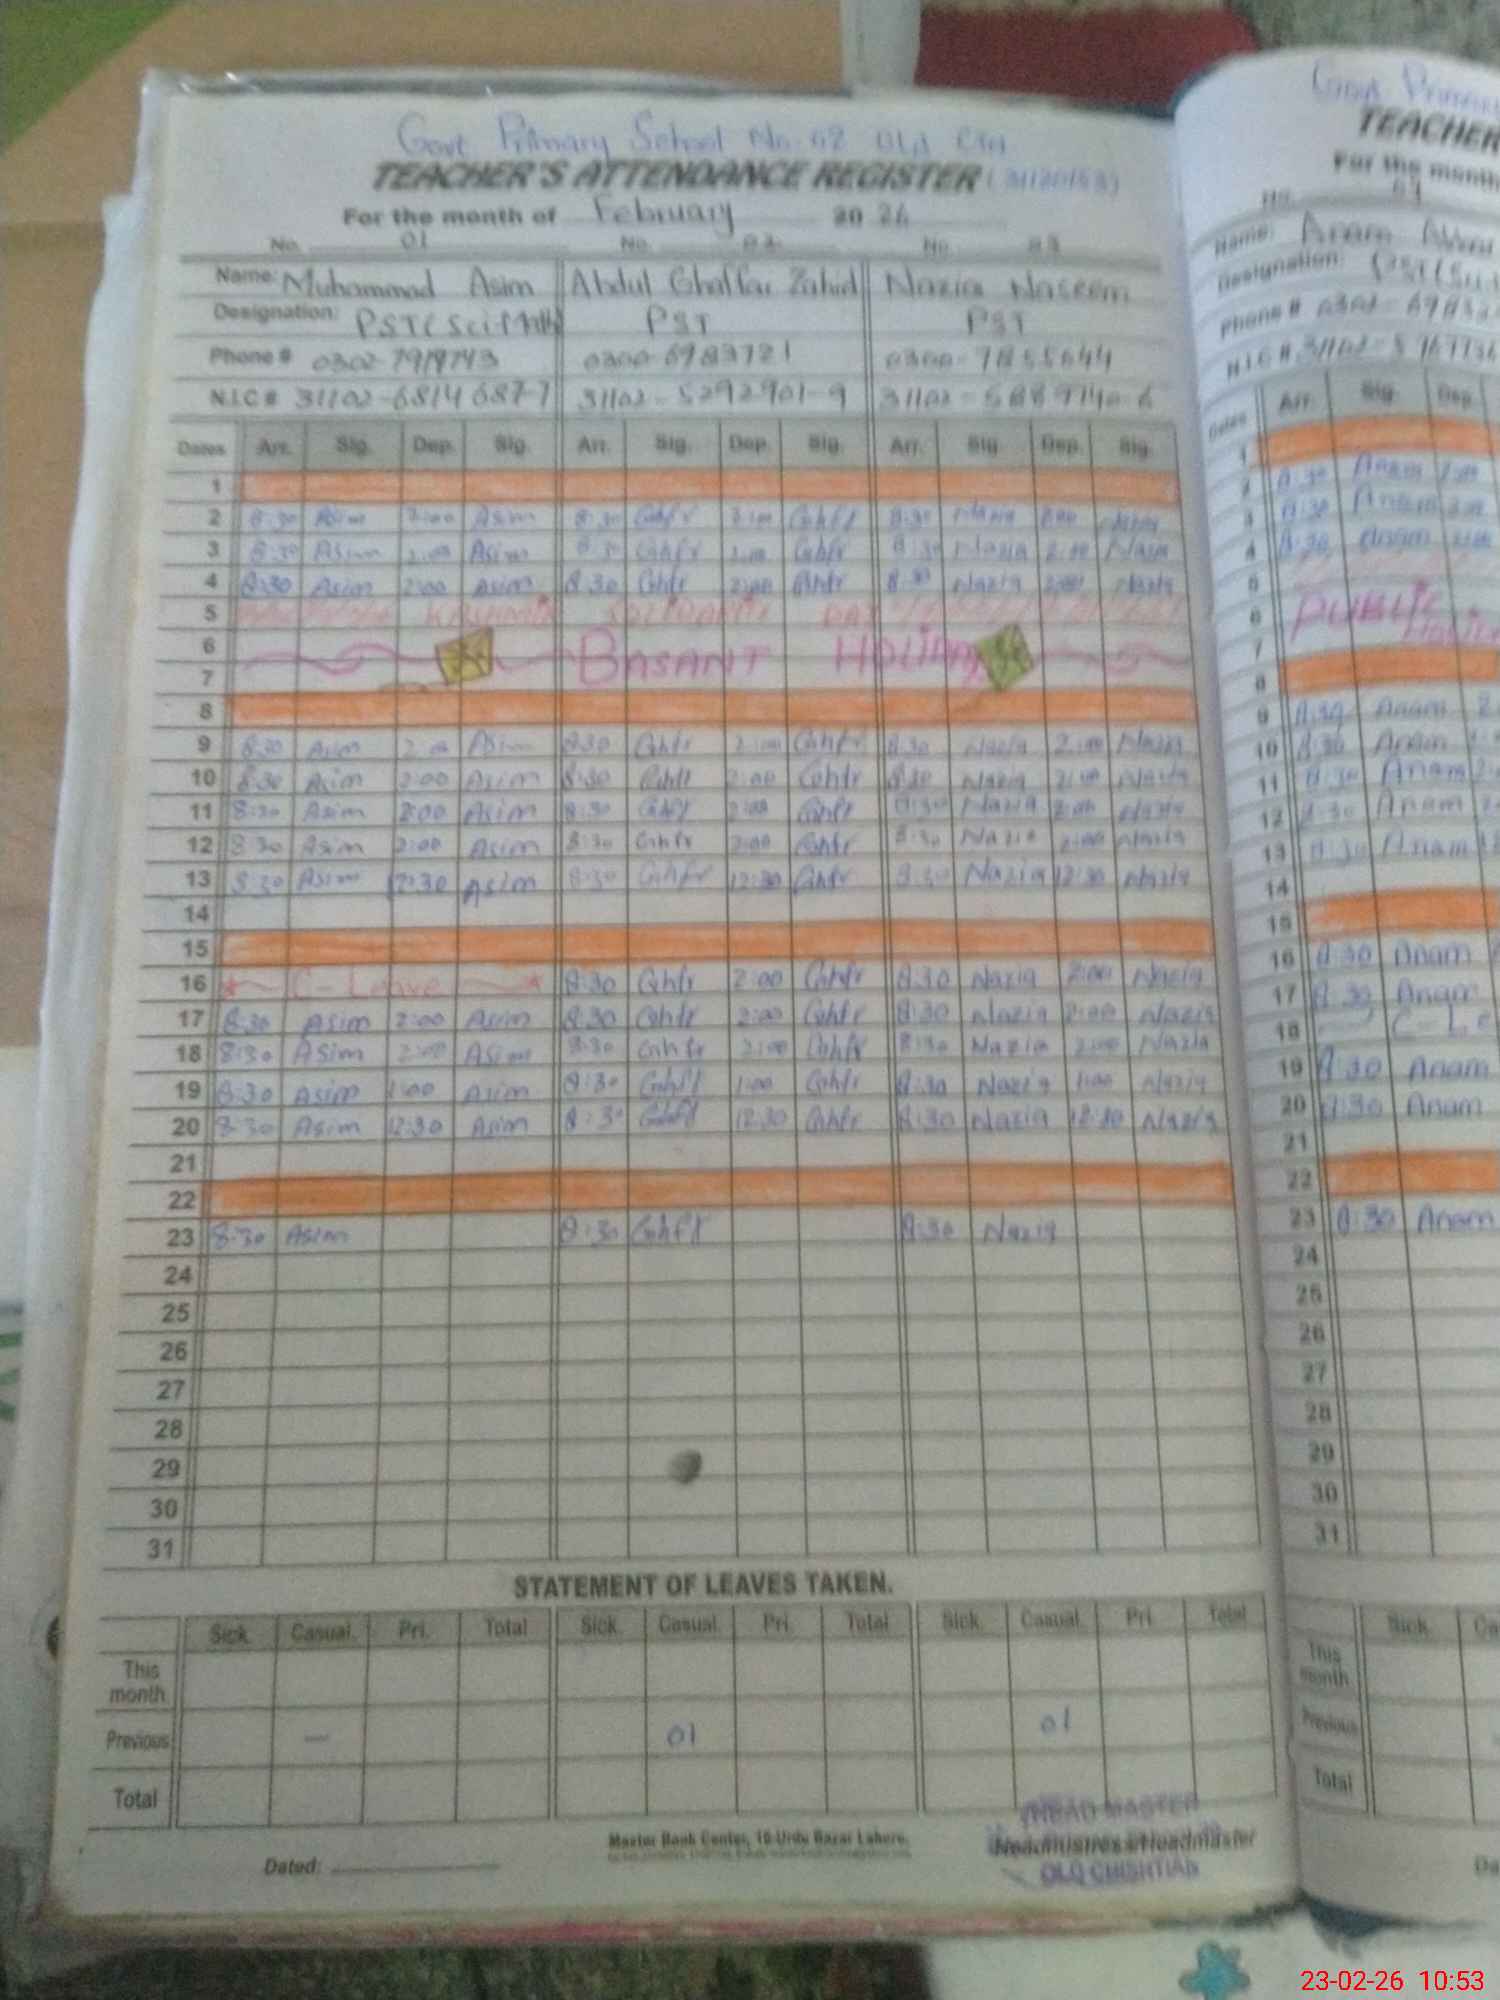 Govt Primary School No. 02 Old Ctn
TEACHER'S ATTENDANCE REGISTER (31120153)
For the month of February 2026
No. 01 No. 02 No. 03
Name: Muhammad Asim Abdul Ghaffar Zahid Nazia Naseem
Designation: PST(Sci-Math) PST PST
Phone #
N.I.C #
Dates Arr. Sig. Dep. Sig. Arr. Sig. Dep. Sig. Arr. Sig. Dep. Sig.
1
2 8:30 Asim 2:00 Asim 8:30 Ghfr 2:00 Ghfr 8:30 Nazia 2:00 Nazia
3 8:30 Asim 2:00 Asim 8:30 Ghfr 2:00 Ghfr 8:30 Nazia 2:00 Nazia
4 8:30 Asim 2:00 Asim 8:30 Ghfr 2:00 Ghfr 8:30 Nazia 2:00 Nazia
5 KASHMIR SOLIDARITY DAY
6 BASANT HOLIDAY
7
8
9 8:30 Asim 2:00 Asim 8:30 Ghfr 2:00 Ghfr 8:30 Nazia 2:00 Nazia
10 8:30 Asim 2:00 Asim 8:30 Ghfr 2:00 Ghfr 8:30 Nazia 2:00 Nazia
11 8:30 Asim 2:00 Asim 8:30 Ghfr 2:00 Ghfr 8:30 Nazia 2:00 Nazia
12 8:30 Asim 2:00 Asim 8:30 Ghfr 2:00 Ghfr 8:30 Nazia 2:00 Nazia
13 8:30 Asim 12:30 Asim 8:30 Ghfr 12:30 Ghfr 8:30 Nazia 12:30 Nazia
14
15
16 C-Leave 8:30 Ghfr 2:00 Ghfr 8:30 Nazia 2:00 Nazia
17 8:30 Asim 2:00 Asim 8:30 Ghfr 2:00 Ghfr 8:30 Nazia 2:00 Nazia
18 8:30 Asim 2:00 Asim 8:30 Ghfr 2:00 Ghfr 8:30 Nazia 2:00 Nazia
19 8:30 Asim 1:00 Asim 8:30 Ghfr 1:00 Ghfr 8:30 Nazia 1:00 Nazia
20 8:30 Asim 12:30 Asim 8:30 Ghfr 12:30 Ghfr 8:30 Nazia 12:30 Nazia
21
22
23 8:30 Asim 8:30 Ghfr 8:30 Nazia
24
25
26
27
28
29
30
31
STATEMENT OF LEAVES TAKEN.
Sick. Casual. Pri. Total Sick. Casual. Pri. Total Sick. Casual. Pri. Total
This month
Previous — 01 01
Total
Master Book Center, 10-Urdu Bazar Lahore.
HEAD MASTER
Headmistress/Headmaster
OLD CHISHTIAN
Dated:
Govt Primary
TEACHER
For the month
No.
Name: Anam
Designation:
Phone #
N.I.C #
Dates Arr. Sig. Dep.
1
2 8:30 Anam 2:00
3 8:30 Anam 2:00
4 8:30 Anam 2:00
5
6 PUBLIC
7
8
9 8:30 Anam
10 8:30 Anam
11 8:30 Anam
12 8:30 Anam
13 8:30 Anam
14
15
16 8:30 Anam
17 8:30 Anam
18 C-Le
19 8:30 Anam
20 8:30 Anam
21
22
23 8:30 Anam
24
25
26
27
28
29
30
31
Sick
This month
Previous
Total
23-02-26 10:53